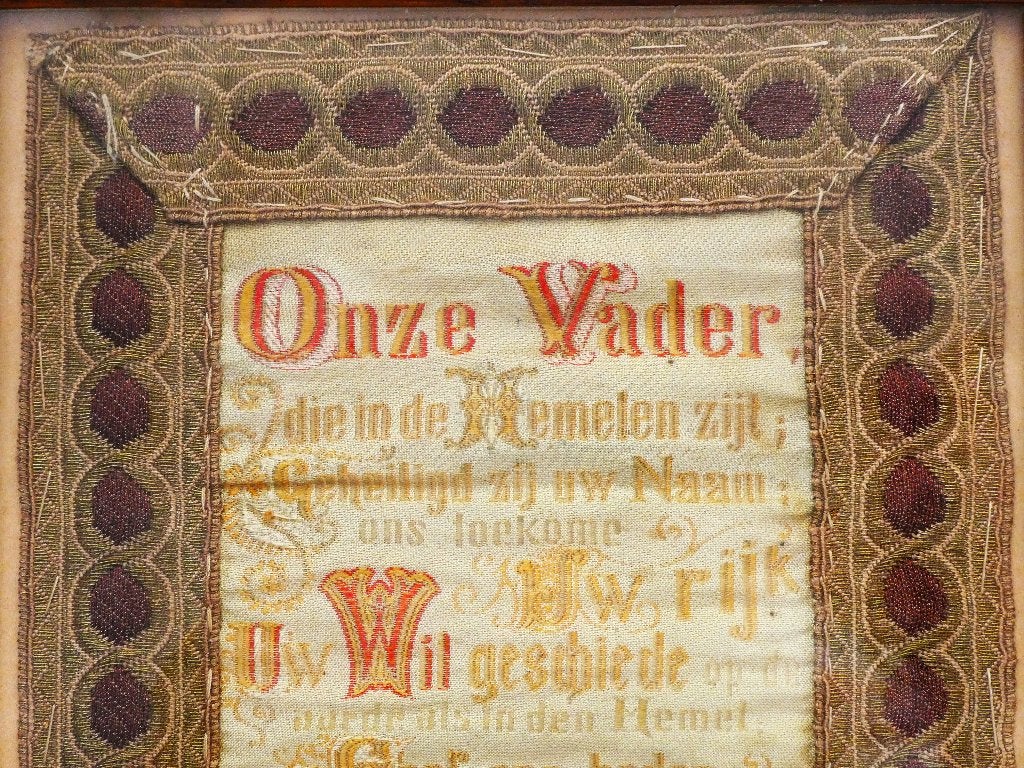 Onze Vader,
die in de Hemelen zijt;
Geheiligd zij uw Naam;
ons toekome
Uw rijk
Uw Wil geschiede op de
aarde als in den Hemel.